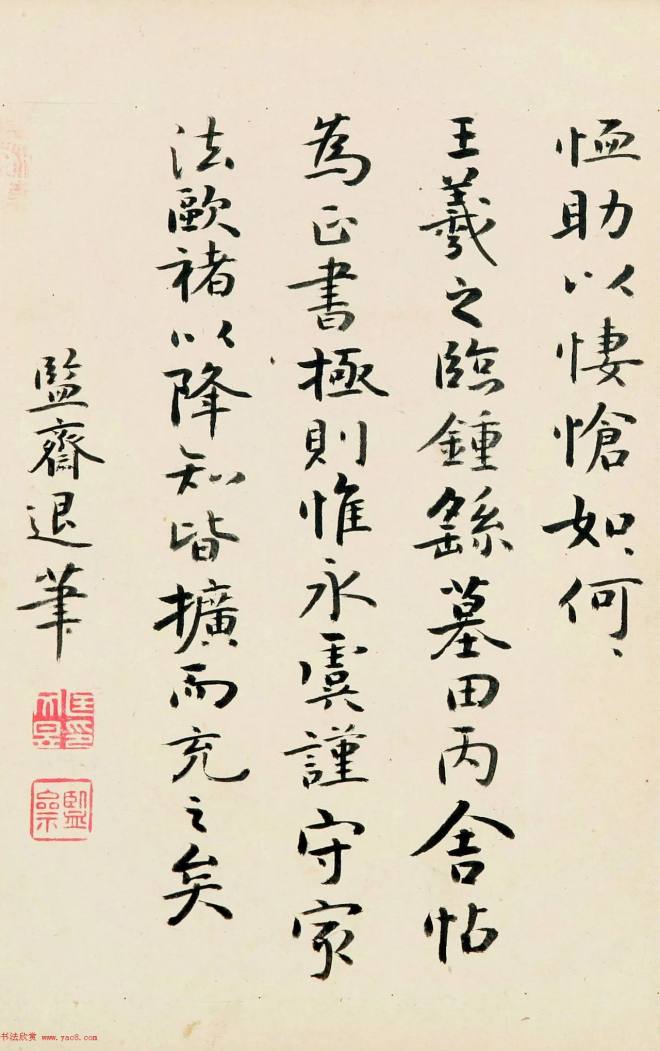 恤助以悽愴如何如何
王羲之臨鍾繇墓田丙舍帖
為正書極則惟永虞謹守家
法歐褚以降知皆擴而充之矣
監齋退筆
书法欣赏 www.yac8.com